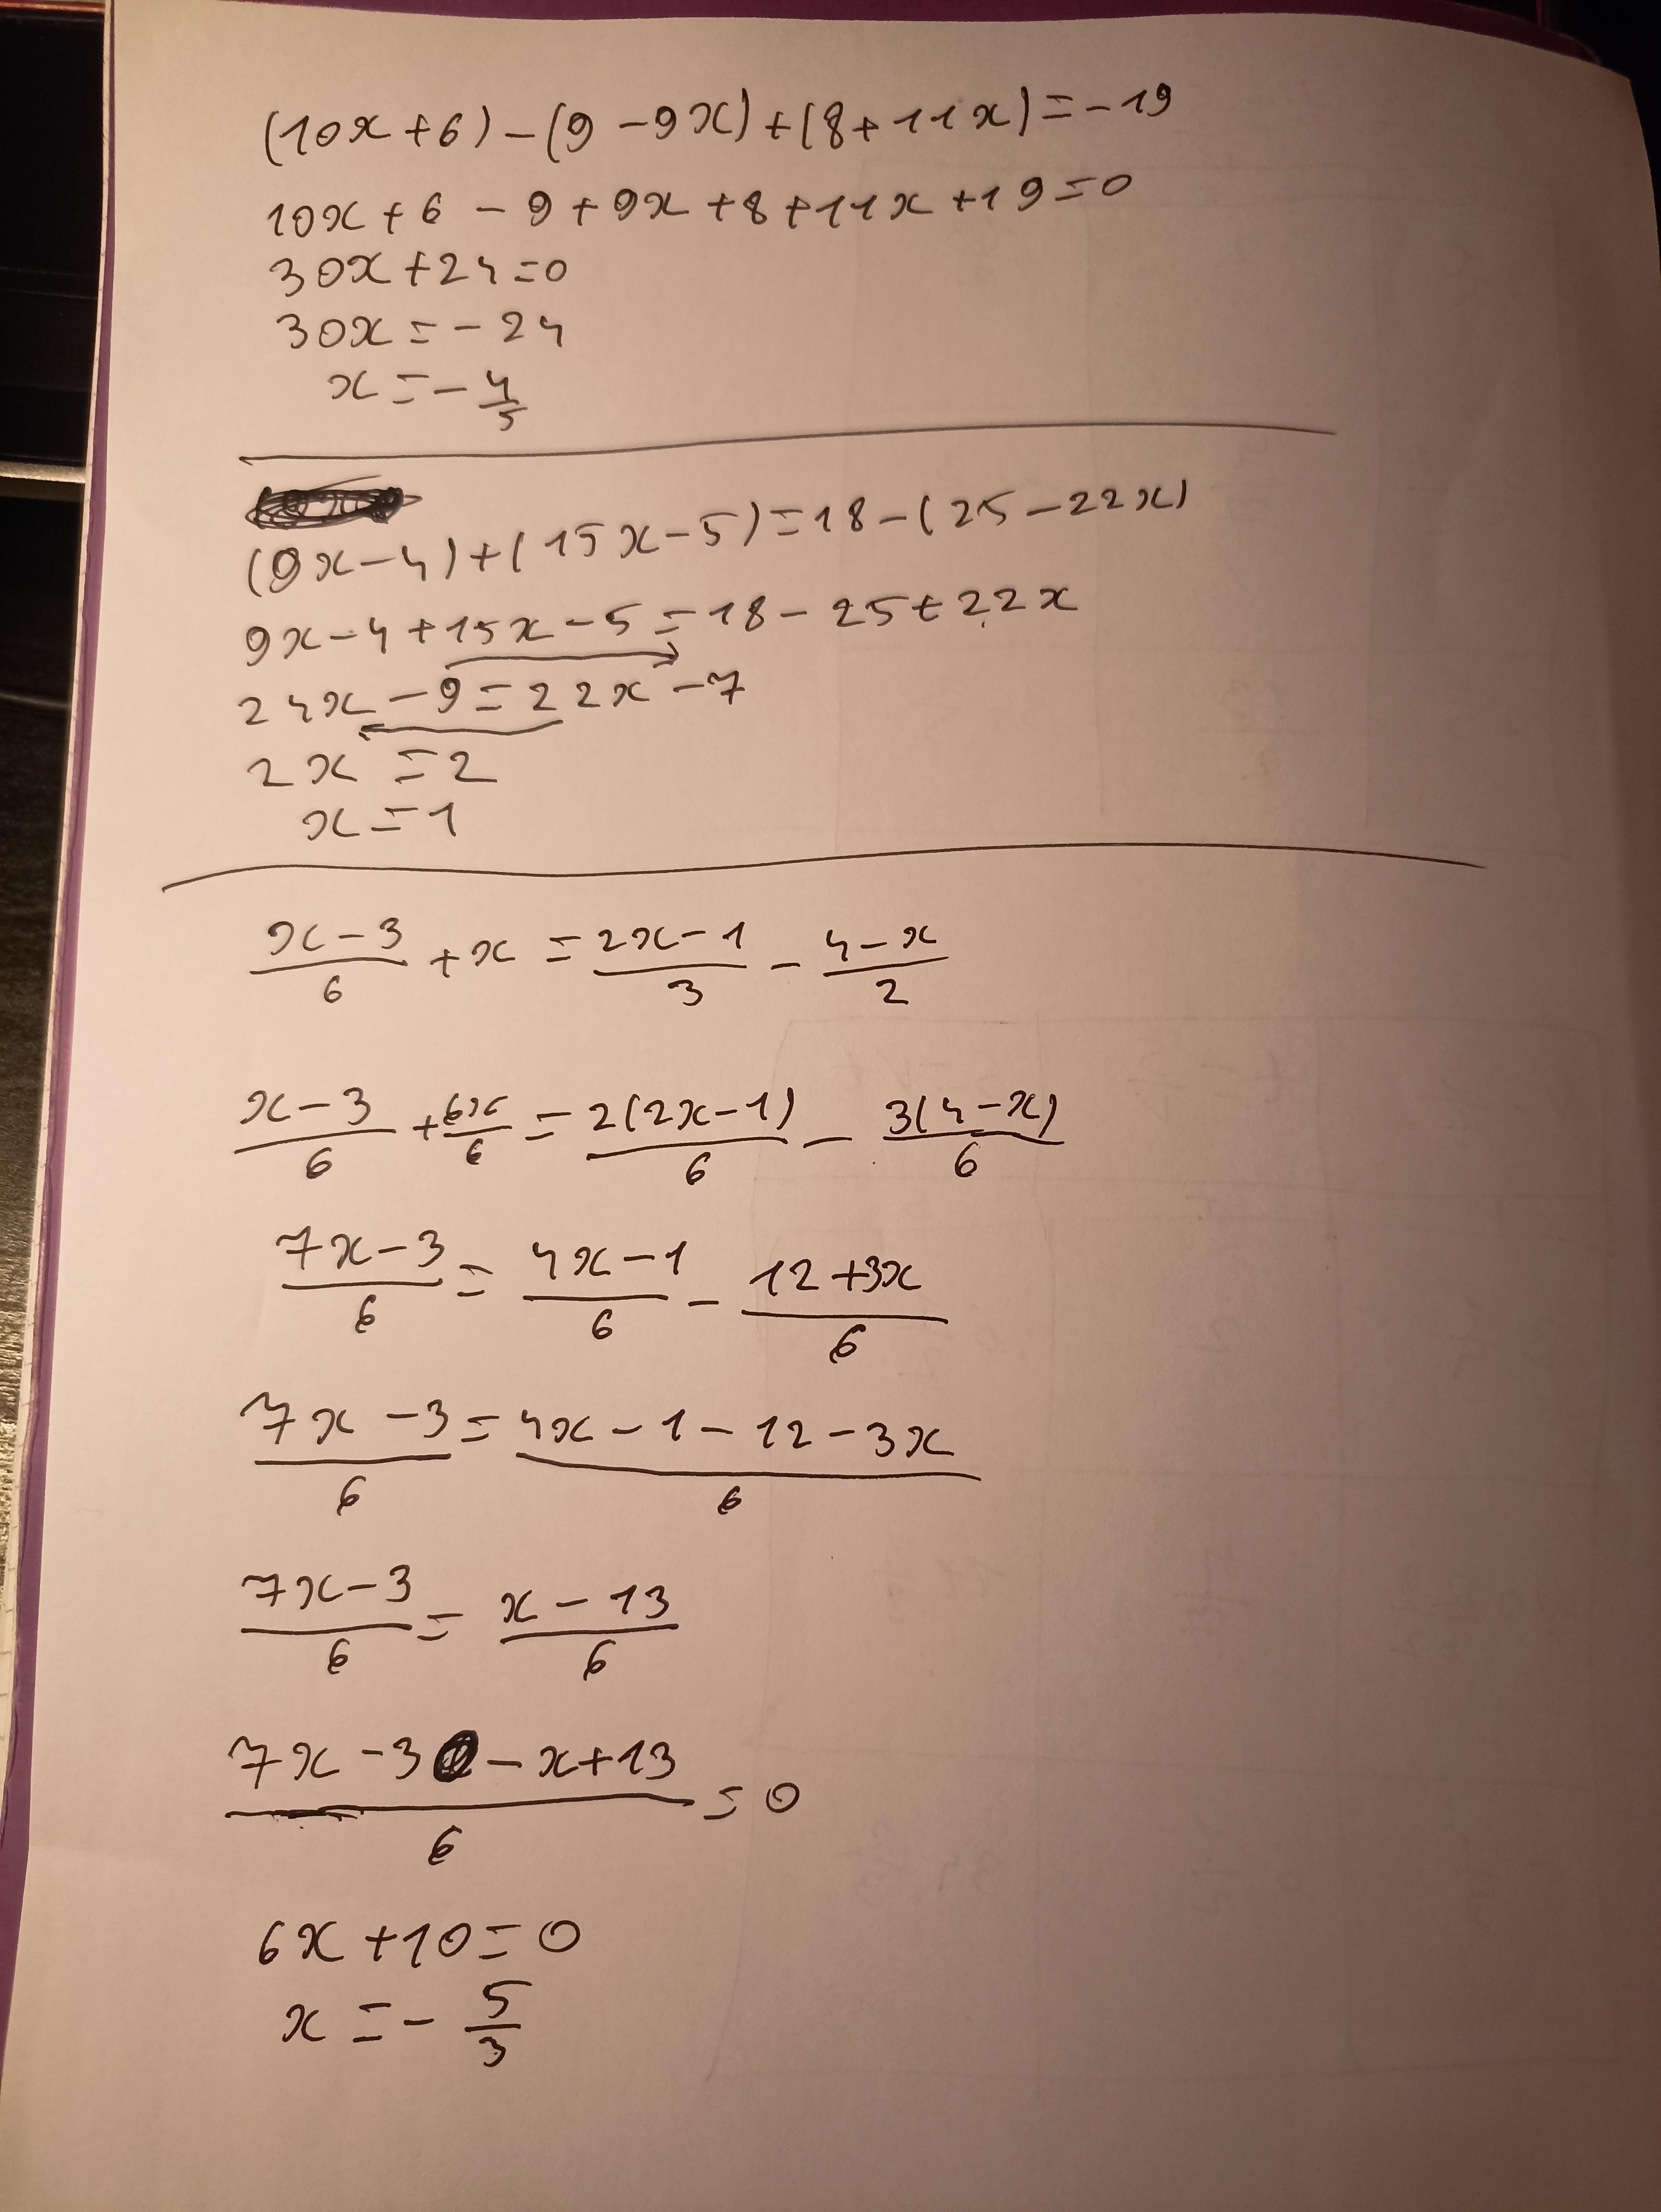 (10x+6)-(9-9x)+(8+11x)=-19
10x+6-9+9x+8+11x+19=0
30x+24=0
30x=-24
x=-4/5
(9x-4)+(15x-5)=18-(25-22x)
9x-4+15x-5=18-25+22x
24x-9=22x-7
2x=2
x=1
(x-3)/6+x=(2x-1)/3-(4-x)/2
(x-3)/6+6x/6=2(2x-1)/6-3(4-x)/6
(7x-3)/6=(4x-1)/6-(12+3x)/6
(7x-3)/6=(4x-1-12-3x)/6
(7x-3)/6=(x-13)/6
(7x-3-x+13)/6=0
6x+10=0
x=-5/3